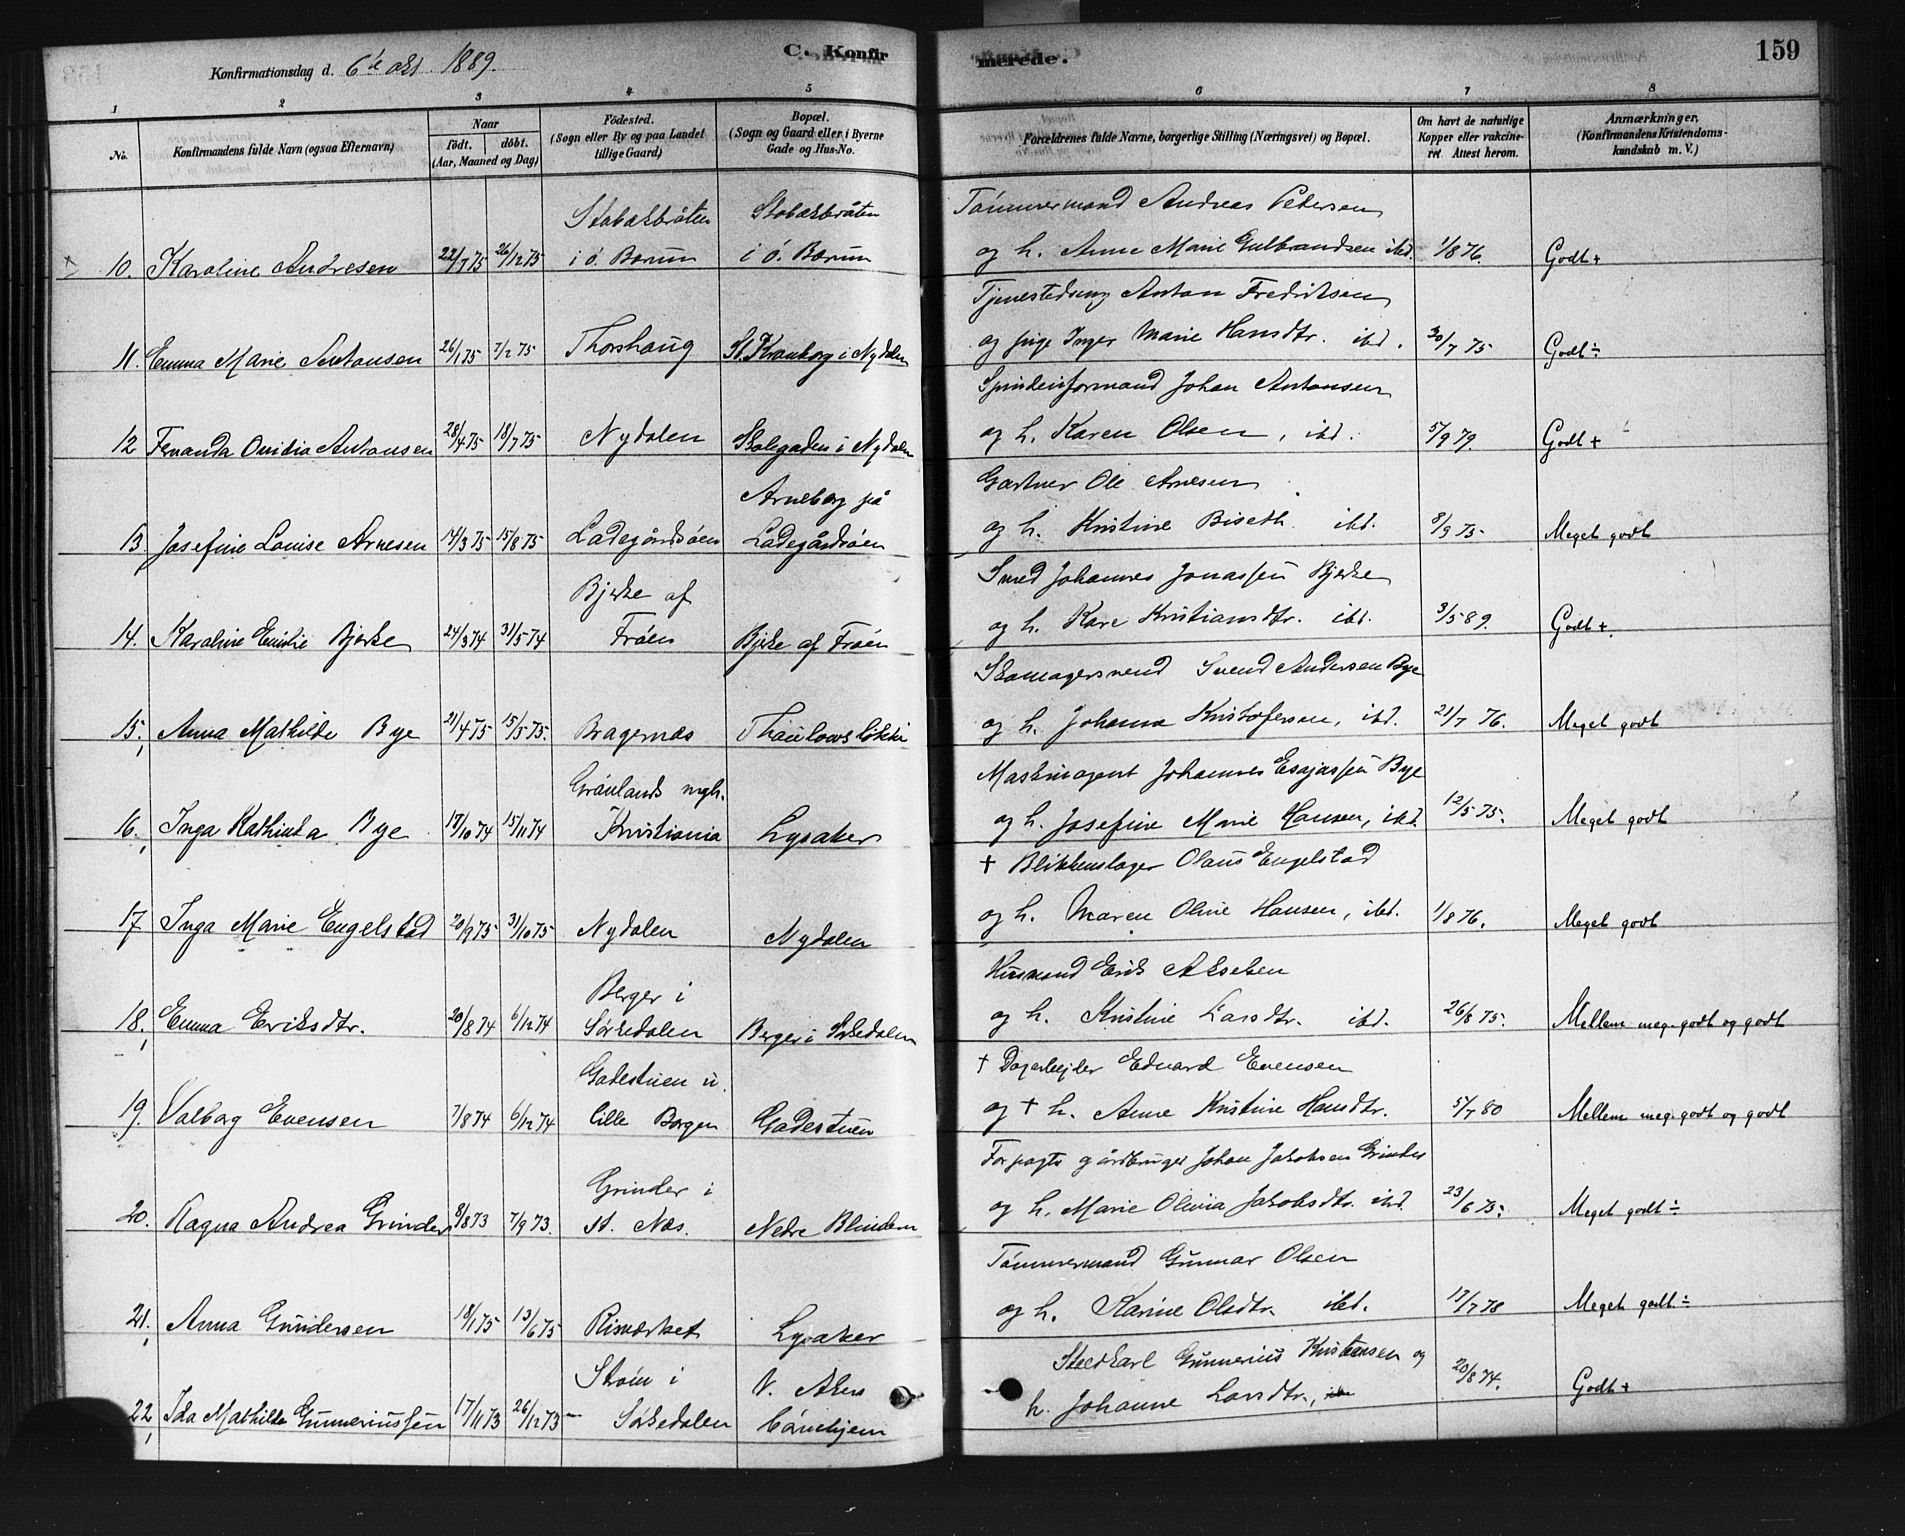 Konfirmationsdag d. 6'te Okt. 1889.
C. Konfirmerede.
159
1 2 3 4 5 6 7 8
No.
Konfirmandens fulde Navn (ogsaa Efternavn)
Naar
födt. döbt.
(Aar, Maaned og Dag)
Födested.
(Sogn eller By og paa Landet
tillige Gaard)
Bopæl.
(Sogn og Gaard eller i Byerne
Gade og Hus-No.
Forældrenes fulde Navne, borgerlige Stilling (Næringsvei) og Bopæl.
Om havt de naturlige
Kopper eller vakcine-
ret. Attest herom.
Anmærkninger,
(Konfirmandens Kristendoms-
kundskab m. V.)
Stabækbråten Stabækbråten Tømmermand Andreas Petersen
10. Karoline Andresen 22/7 75 26/12 75 i ö. Bærum i ö. Bærum og h. Anne Marie Gulbrandsen ibd. 1/8 76. Godt +
Tjenestedreng Anton Fredriksen
11. Emma Marie Antonsen 26/1 75 7/2 75 Thorshaug St. Kranborg i Nydalen og pige Inger Marie Hansdtr. ibd. 30/7 75 Godt ÷
Spinderiformand Johan Antonsen
12 Fernanda Ovidia Antonsen 28/4 75 18/7 75 Nydalen Skolegaden i Nydalen og h. Karen Olsen, ibd. 5/9 79. Godt +
Arneborg på Gartner Ole Arnesen
13. Josefine Louise Arnesen 14/3 75 15/8 75 Ladegårdsöen Ladegårdsöen og h. Kristine Biseth. ibd. 8/9 75. Meget godt
Bjerke af Smed Johannes Jonassen Bjerke
14. Karoline Emilie Bjerke 24/3 74 31/5 74 Fröen Bjerke af Fröen og h. Kare Kristiansdtr. ibd. 3/5 89. Godt +.
Skomagersvend Svend Andersen Bye
15. Anna Mathilde Bye 21/4 75 15/5 75. Bragernæs Thaulowsløkke og h. Johanna Kristofersen, ibd. 21/7 76. Meget godt
Grönlands mgh. Maskinagent Johannes Esajassen Bye
16. Inga Kathinka Bye 17/10 74 15/11 74 Kristiania Lysaker og h. Josefine Marie Hansen, ibd. 12/5 75. Meget godt
+ Blikkenslager Olaus Engelstad
17 Inga Marie Engelstad 20/9 75 31/10 75 Nydalen Nydalen og h. Maren Oline Hansen, ibd. 1/8 76. Meget godt
Berger i Husmand Erik Akselsen
18. Emma Eriksdtr. 20/8 74 6/12 74 Sörkedalen Berger i Sörkedalen og h. Kristine Larsdtr. ibd. 26/8 75. Mellem meg. godt og godt
Gadestuen u. + Dagarbejder Edvard Evensen
19. Valborg Evensen 7/8 74 6/12 74 lille Borgen Gadestuen og + h. Anne Kristine Hansdtr. 5/7 80 Mellem meg. godt og godt
Grinder i Forpagter gårdbruger Johan Jakobsen Grinder
20. Ragna Andrea Grinder 8/8 73 7/9 73. N. Næs. Nedre Blindern og h. Marie Olivia Jakobsdtr. ibd. 23/6 75. Meget godt ÷
Tømmermand Gunnar Olsen
21. Anna Gundersen 18/1 75 13/6 75 Risværket Lysaker og h. Karine Olsdtr. ibd. 17/7 78 Meget godt ÷
Ström i V. Akers Stedkarl Gunnerius Kristensen og
22 Ida Mathilde Gunneriussen 17/11 73 26/12 73 Sörkedalen börnehjem h. Johanne Larsdtr., 20/8 74. Godt +